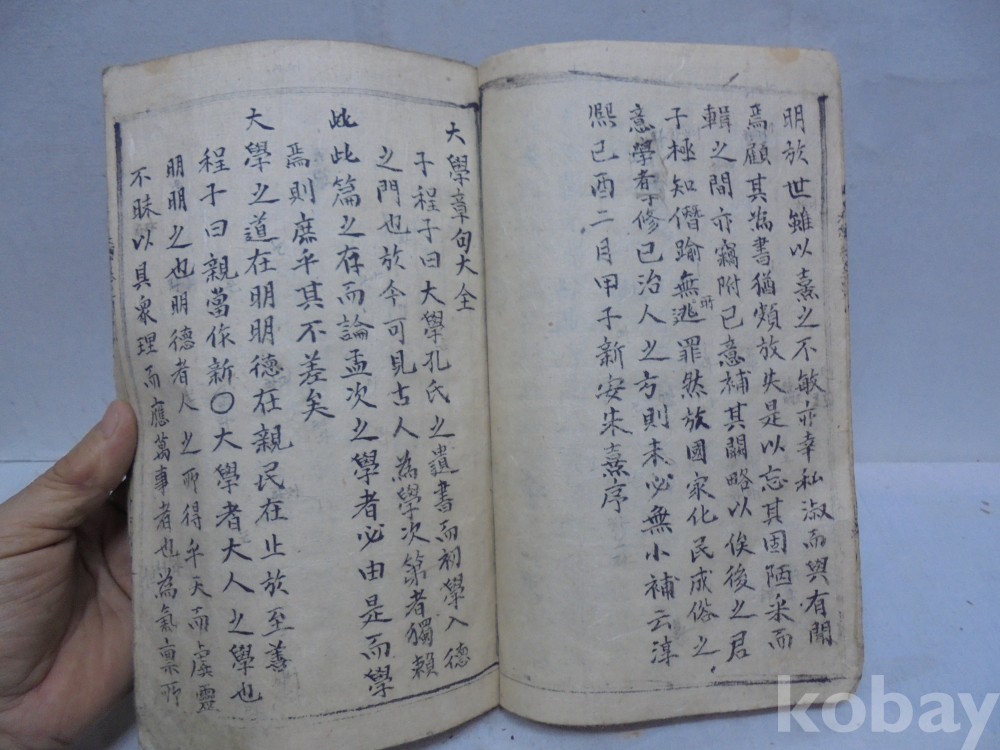 明於世雖以熹之不敏亦幸私淑而與有聞
焉顧其為書猶頗放失是以忘其固陋采而
輯之間亦竊附己意補其闕略以俟後之君
子極知僭踰無逃罪然於國家化民成俗之
所
意學者修己治人之方則未必無小補云淳
熙己酉二月甲子新安朱熹序
大學章句大全
子程子曰大學孔氏之遺書而初學入德
之門也於今可見古人為學次第者獨賴
此此篇之存而論孟次之學者必由是而學
焉則庶乎其不差矣
大學之道在明明德在親民在止於至善
程子曰親當作新〇大學者大人之學也
明明之也明德者人之所得乎天而虛靈
不昧以具衆理而應萬事者也為氣稟所
kobay